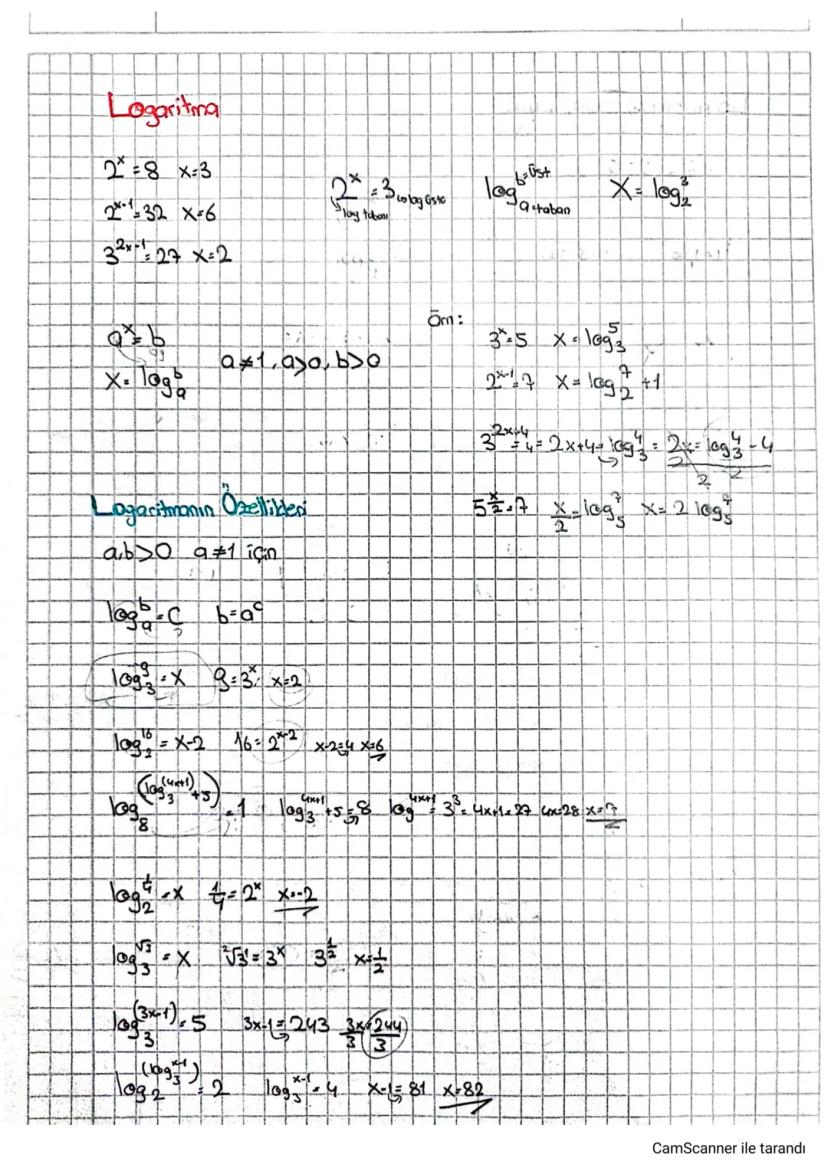 Logaritma
2^x = 8 x=3
2^(x-1) = 32 x=6
3^(2x-1) = 27 x=2
2^x = 3 → log üstü
→ log tabanı
log_a^b b=üst a=taban
x = log_2^3
a^x = b
x = log_a^b
a≠1, a>0, b>0
Örn:
3^x = 5 x = log_3^5
2^(x-1) = 7 x = log_2^7 + 1
3^(2x+4) = 4 = 2x+4 = log_3^4 = 2x/2 = (log_3^4 - 4)/2
5^(x/2) = 7 x/2 = log_5^7 x = 2 log_5^7
Logaritmanın Özellikleri
a,b>0 a≠1 için
log_a^b = c b = a^c
log_3^9 = x 9 = 3^x x=2
log_2^16 = x-2 16 = 2^(x-2) x-2=4 x=6
log_8^(log_3^(4x+1) + 5) = 1 log_3^(4x+1) + 5 = 8 log^(4x+1) = 3^3 = 4x+1=27 4x=28 x=7
log_2^(1/4) = x 1/4 = 2^x x=-2
log_3^√3 = x ²√3¹ = 3^x 3^(1/2) x=1/2
log_3^(3x-1) = 5 3x-1 = 243 3x/3 = 244/3
log_2^(log_3^(x-1)) = 2 log_3^(x-1) = 4 x-1 = 81 x=82
CamScanner ile tarandı